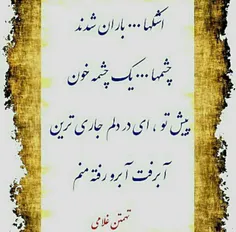 اشکها ... باران شدند
چشمها ... یک چشمه خون
پیش تو ، ای در دلم جاری ترین
آبرفت آبرو رفته منم
تهمتن غلامی